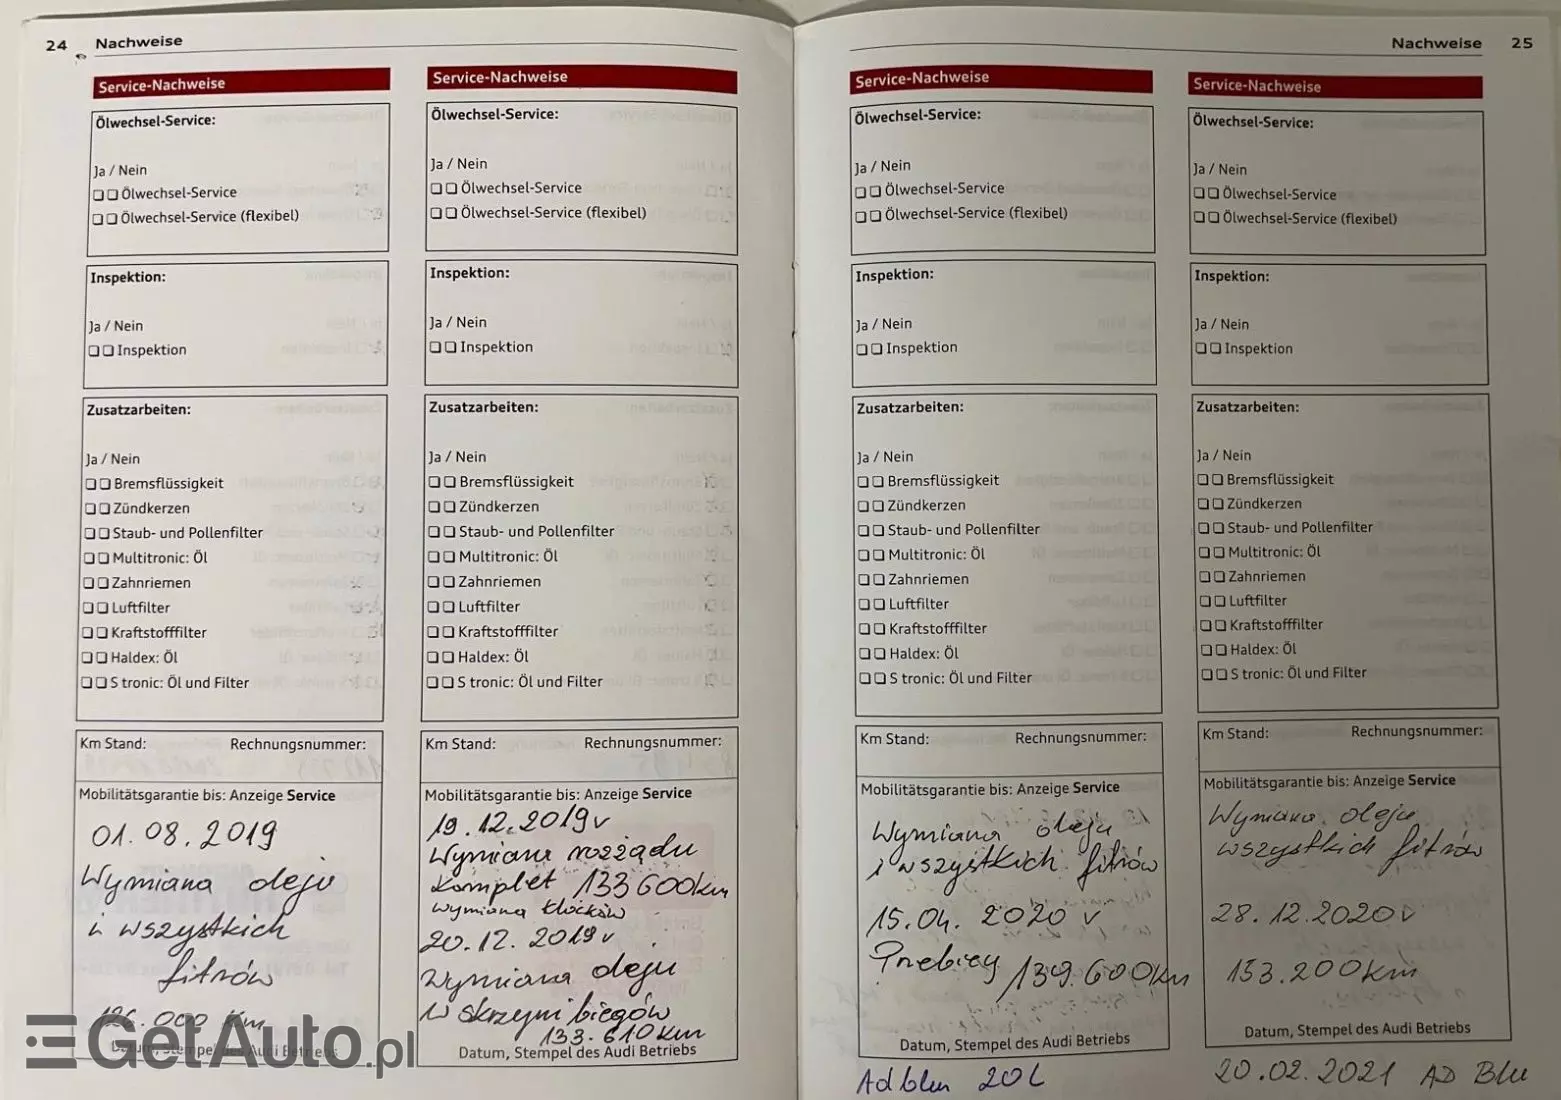 24 Nachweise
Service-Nachweise
Ölwechsel-Service:
Ja / Nein
Ölwechsel-Service
Ölwechsel-Service (flexibel)
Inspektion:
Ja / Nein
Inspektion
Zusatzarbeiten:
Ja / Nein
Bremsflüssigkeit
Zündkerzen
Staub- und Pollenfilter
Multitronic: Öl
Zahnriemen
Luftfilter
Kraftstofffilter
Haldex: Öl
S tronic: Öl und Filter
Km Stand: Rechnungsnummer:
Mobilitätsgarantie bis: Anzeige Service
01.08.2019
Wymiana oleju
i wszystkich
fitrów
126.000 Km
Datum, Stempel des Audi Betriebs
Service-Nachweise
Ölwechsel-Service:
Ja / Nein
Ölwechsel-Service
Ölwechsel-Service (flexibel)
Inspektion:
Ja / Nein
Inspektion
Zusatzarbeiten:
Ja / Nein
Bremsflüssigkeit
Zündkerzen
Staub- und Pollenfilter
Multitronic: Öl
Zahnriemen
Luftfilter
Kraftstofffilter
Haldex: Öl
S tronic: Öl und Filter
Km Stand: Rechnungsnummer:
Mobilitätsgarantie bis: Anzeige Service
19.12.2019r
Wymiana rozządu
Komplet 133 600km
wymiana klocków
20.12.2019r
Wymiana oleju
w skrzyni biegów
133.610km
Datum, Stempel des Audi Betriebs
Nachweise 25
Service-Nachweise
Ölwechsel-Service:
Ja / Nein
Ölwechsel-Service
Ölwechsel-Service (flexibel)
Inspektion:
Ja / Nein
Inspektion
Zusatzarbeiten:
Ja / Nein
Bremsflüssigkeit
Zündkerzen
Staub- und Pollenfilter
Multitronic: Öl
Zahnriemen
Luftfilter
Kraftstofffilter
Haldex: Öl
S tronic: Öl und Filter
Km Stand: Rechnungsnummer:
Mobilitätsgarantie bis: Anzeige Service
Wymiana oleju
i wszystkich fitrów
15.04.2020 r
Przebieg 139.600km
Datum, Stempel des Audi Betriebs
Adblu 20L
Service-Nachweise
Ölwechsel-Service:
Ja / Nein
Ölwechsel-Service
Ölwechsel-Service (flexibel)
Inspektion:
Ja / Nein
Inspektion
Zusatzarbeiten:
Ja / Nein
Bremsflüssigkeit
Zündkerzen
Staub- und Pollenfilter
Multitronic: Öl
Zahnriemen
Luftfilter
Kraftstofffilter
Haldex: Öl
S tronic: Öl und Filter
Km Stand: Rechnungsnummer:
Mobilitätsgarantie bis: Anzeige Service
Wymiana oleju
wszystkich fitrów
28.12.2020r
153.200km
Datum, Stempel des Audi Betriebs
20.02.2021 AD Blu
GetAuto.pl